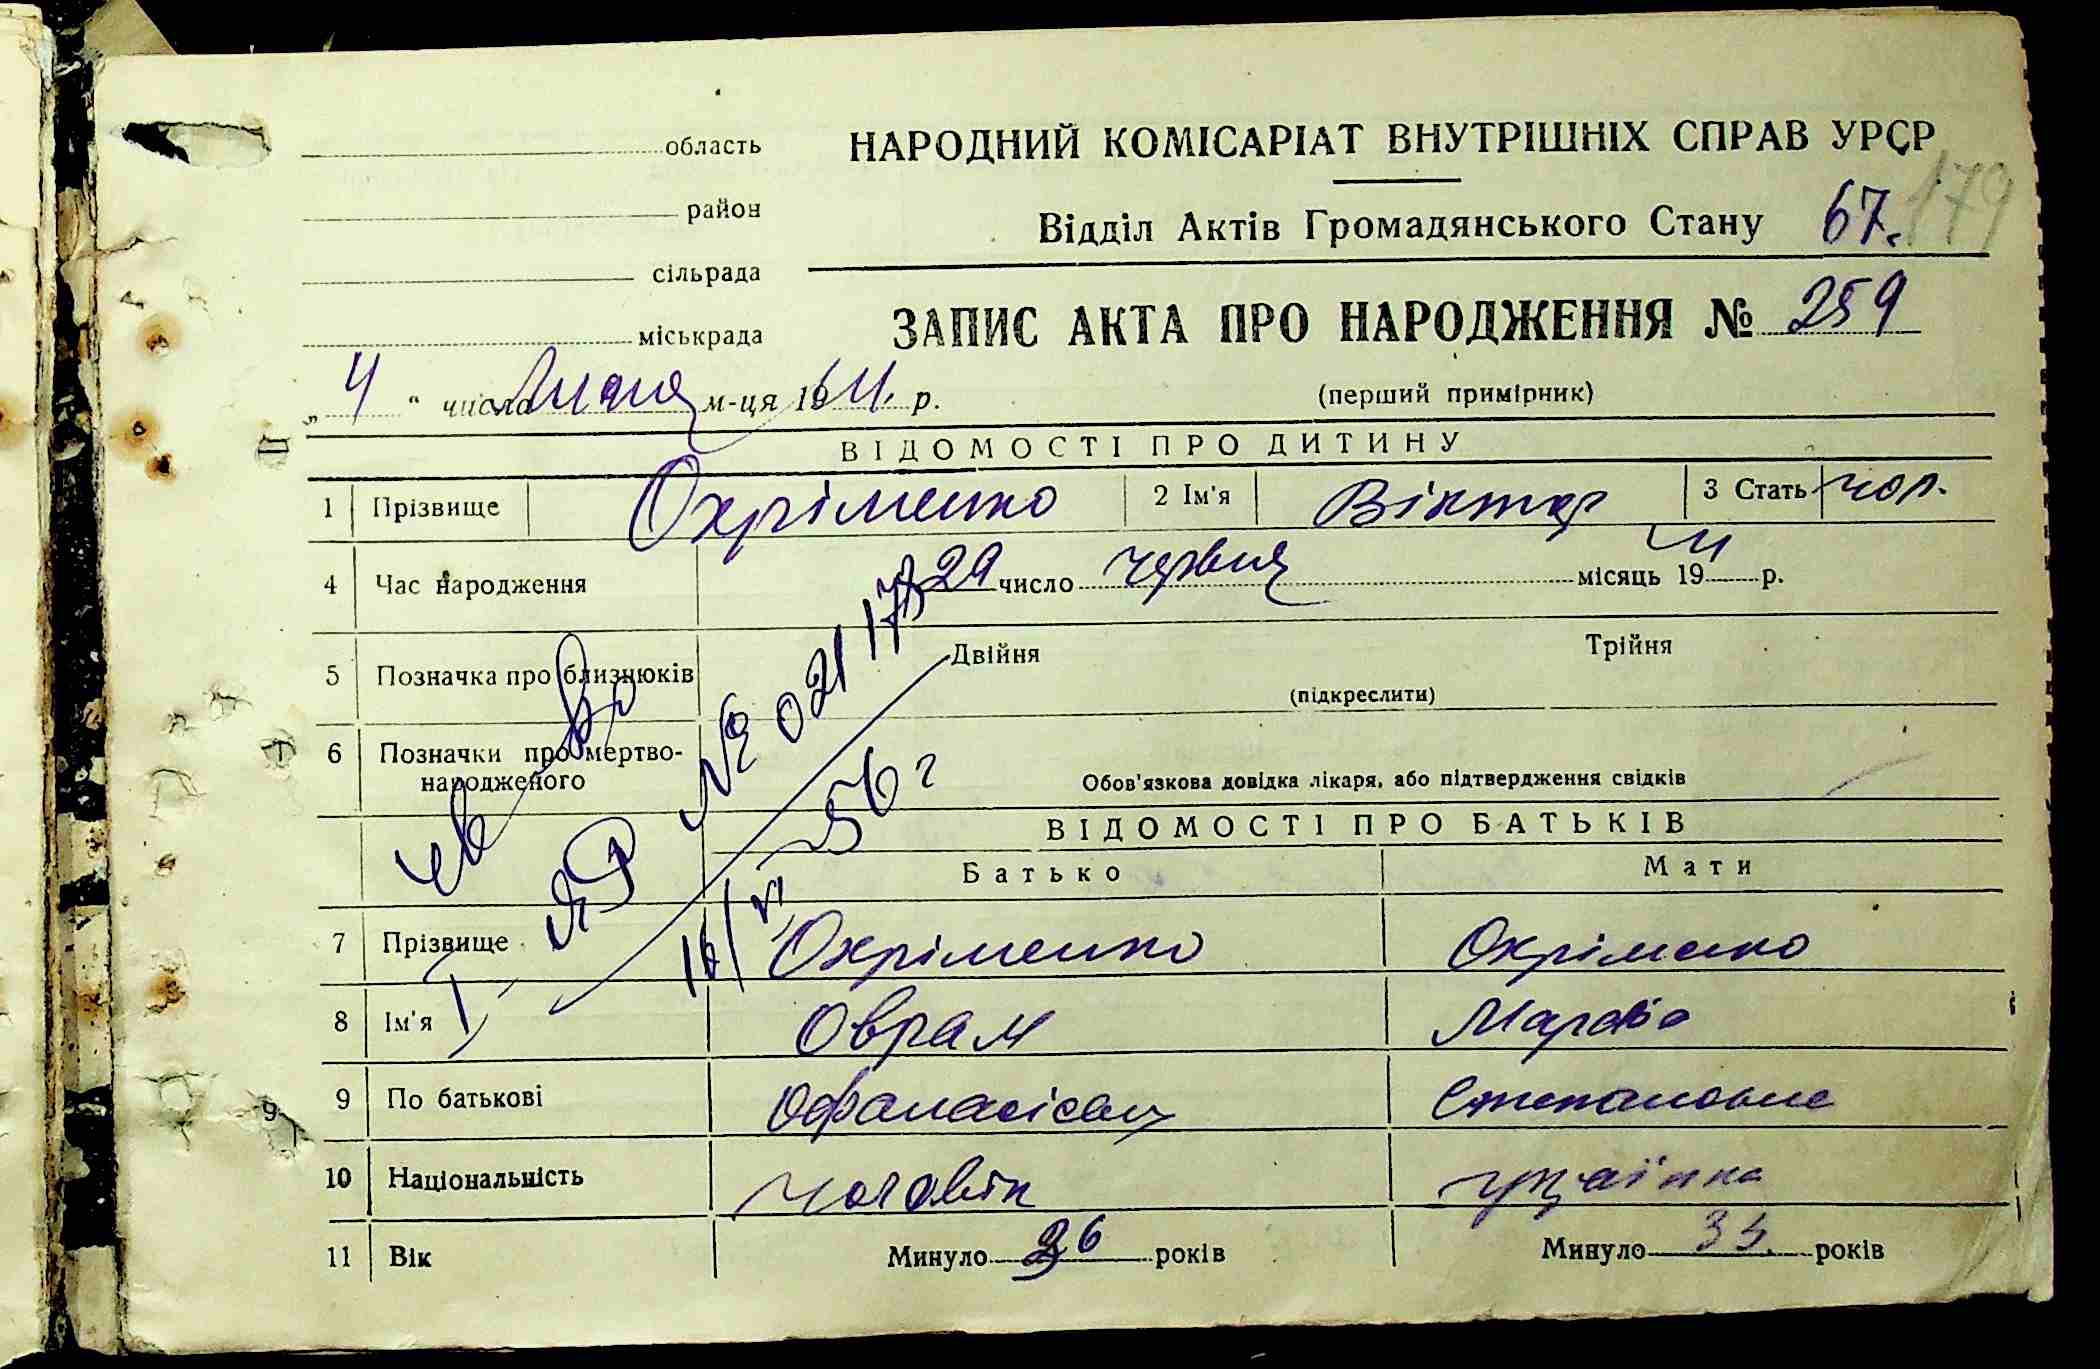 область
район
сільрада
міськрада
НАРОДНИЙ КОМІСАРІАТ ВНУТРІШНІХ СПРАВ УРСР
179
Відділ Актів Громадянського Стану 67.
ЗАПИС АКТА ПРО НАРОДЖЕННЯ № 259
(перший примірник)
„ 4 “ числа м-ця 1941. р.
ВІДОМОСТІ ПРО ДИТИНУ
1 Прізвище Охріменко 2 Ім'я Віктор 3 Стать чол.
4 Час народження 29 число червня місяць 1941 р.
5 Позначка про близнюків Двійня Трійня
(підкреслити)
6 Позначки про мертвонародженого
Обов'язкова довідка лікаря, або підтвердження свідків
№ 021173
16/VI 56 г
ВІДОМОСТІ ПРО БАТЬКІВ
Батько Мати
7 Прізвище Охріменко Охріменко
8 Ім'я Оврам
9 По батькові Степановна
10 Національність чоловік українка
11 Вік Минуло 36 років Минуло років
9